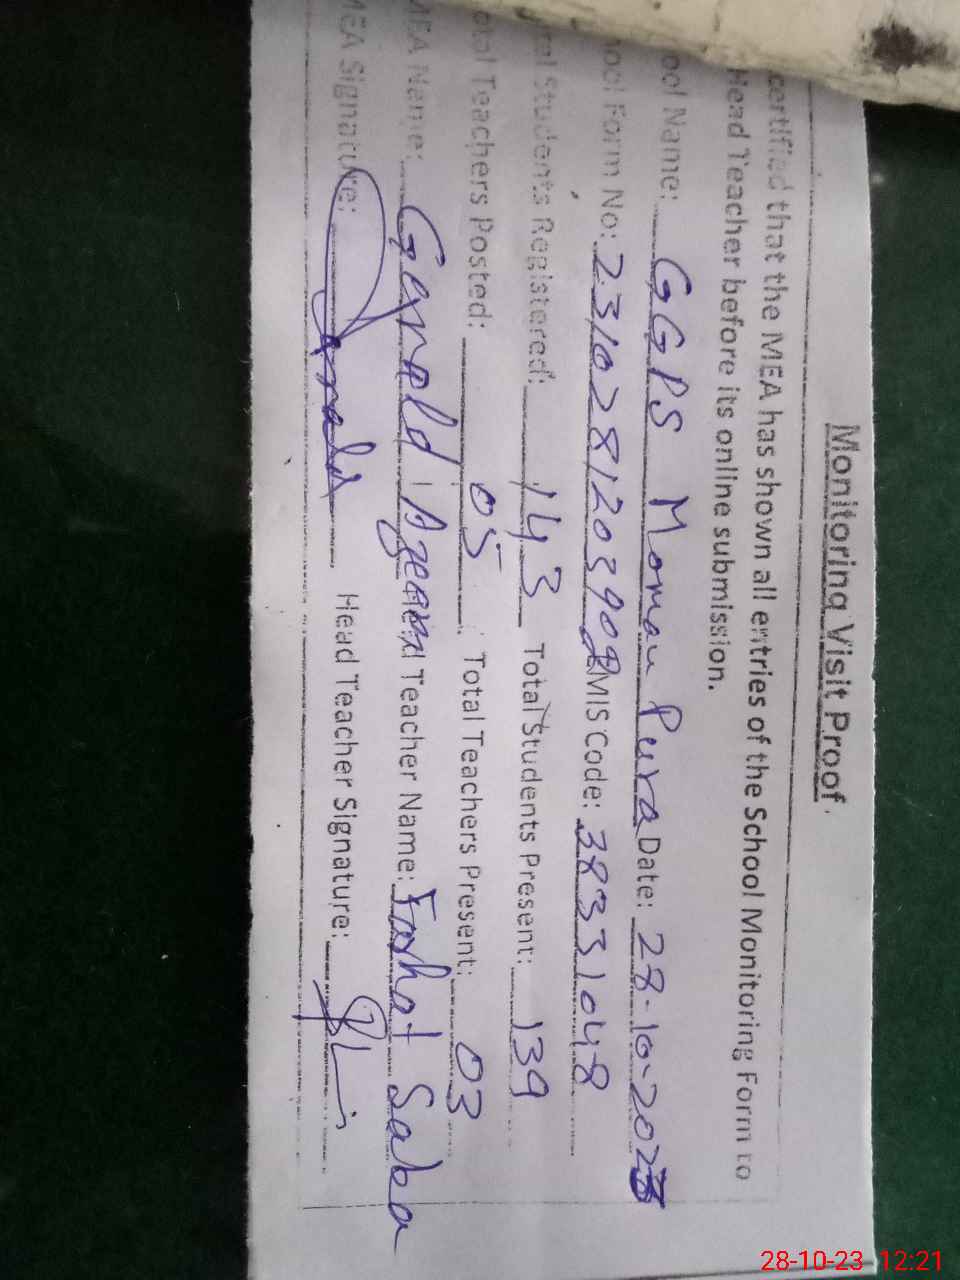 Monitoring Visit Proof.
certified that the MEA has shown all entries of the School Monitoring Form to
Head Teacher before its online submission.
ool Name: GGPS Moman Pura Date: 28-10-2023
ool Form No: EMIS Code: 38331048
Students Registered: 143 Total Students Present: 139
otal Teachers Posted: 05 Total Teachers Present: 03
MEA Name: Gerald Teacher Name: Farhat Saba
MEA Signature: Head Teacher Signature:
28-10-23 12:21